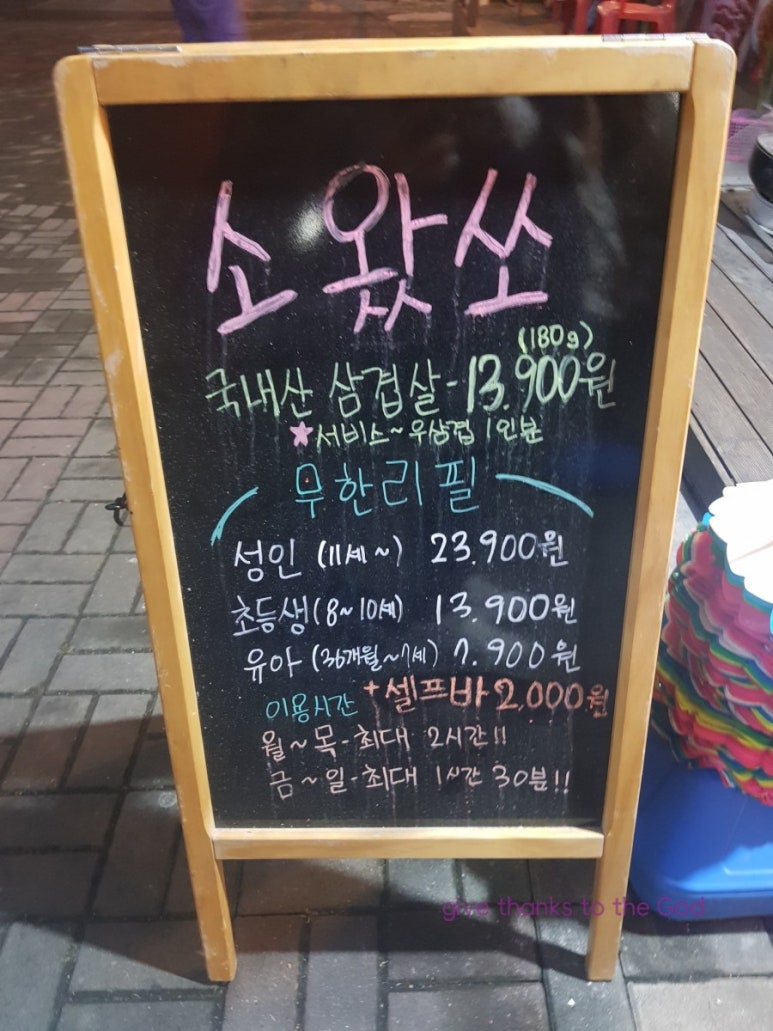 소 왔 쏘
(180g)
국내산 삼겹살 - 13.900원
★서비스~우삼겹 1인분
무한리필
성인 (11세~) 23.900원
초등생(8~10세) 13.900원
유아 (36개월~7세) 7.900원
이용시간 +셀프바 2,000원
월~목-최대 2시간!!
금~일-최대 1시간 30분!!
give thanks to the God